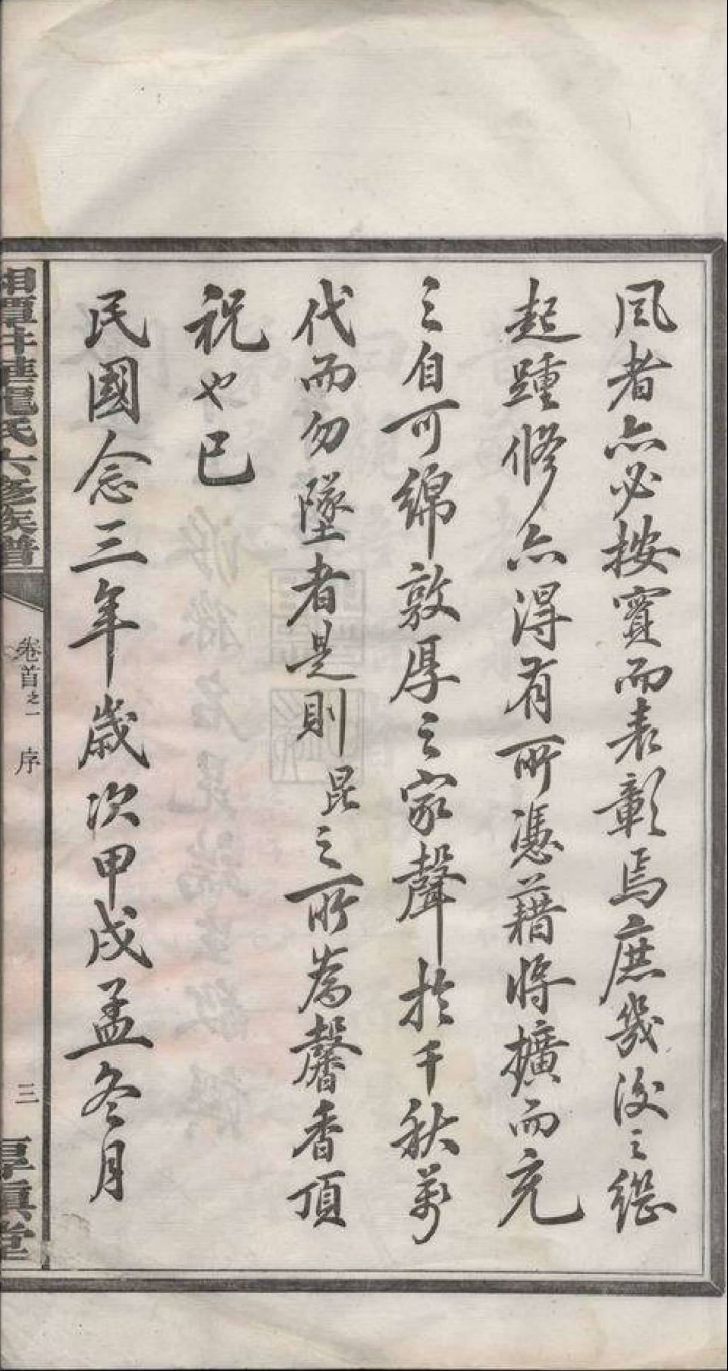 風者亦必按實而表彰焉庶幾後之繼
起踵修亦得有所憑藉將擴而充
之自可綿敦厚之家聲於千秋萬
代而勿墜者是則昆之所為馨香頂
祝也已
民國念三年歲次甲戌孟冬月
湘潭龍氏六修族譜
卷首之一 序
三
厚堂